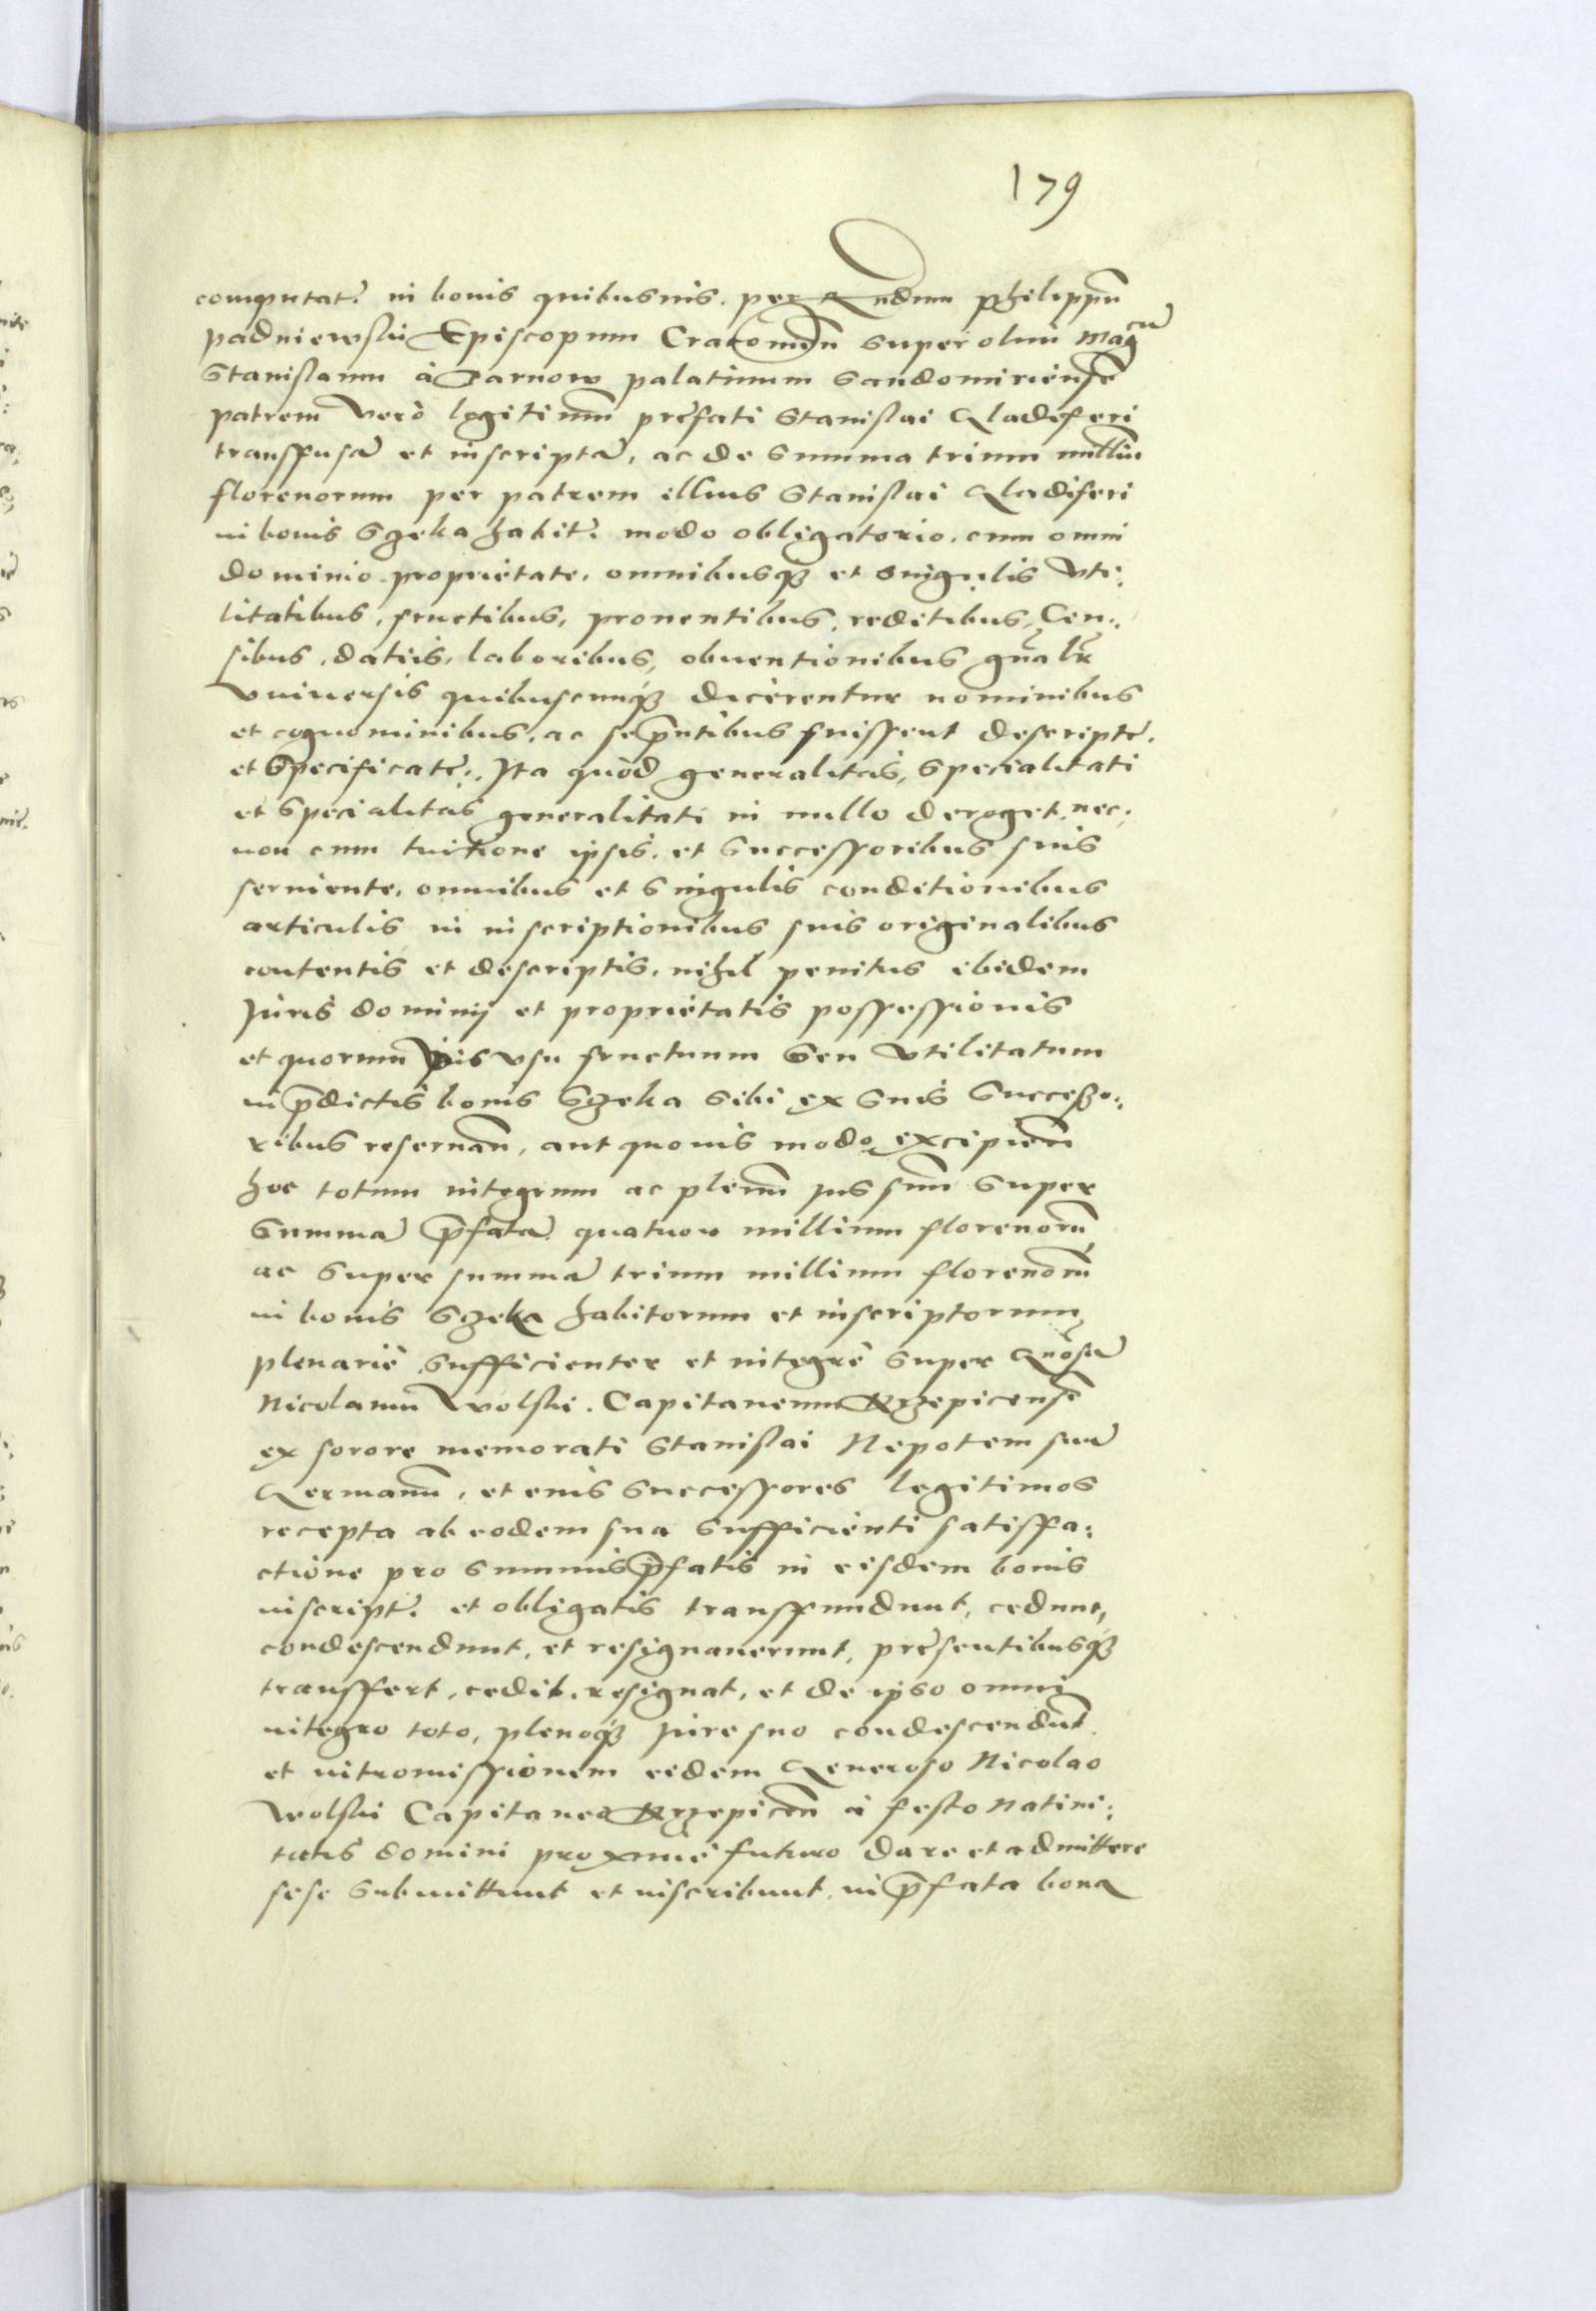 179
computat: in bonis quibusuis. per Rndum Philippũ
Padniewski Episcopum Cracouien̄ super olim Mag͞cũ
Stanislaum à Tarnow palatinum Sandomiriensẽ
patrem vero legitimũ prefati Stanislai Gladiferi
transfusã et inscriptã, ac de summa trium milliũ
florenorum per patrem illius Stanislai Gladiferi
in bonis Szeka habit: modo obligatorio. cum omni
dominio proprietate. omnibusq3 et singulis vti:
litatibus, fructibus, prouentibus, reditibus, Cen:
sibus, datiis, laboribus, obuentionibus gñalr
vniuersis quibuscunq3 dicerentur nominibus
et cognominibus. ac si p̃ntibus fuissent descripte.
et specificate:. Ita quòd generalitas, specialitati
et specialitas generalitati in nullo deroget. nec:
non cum tuitione ipsis. et successoribus suis
seruiente, omnibus et singulis conditionibus
articulis in inscriptionibus suis originalibus
contentis et descriptis, nihil penitus ibidem
Iuris dominij et proprietatis possessionis
et quorumvis vsu fructuum seu vtilitatum
in p̃dictis bonis Szeka sibi ex suis successo:
ribus reseruan̄, aut quouis modo excipien̄
hoc totum integrum ac plenũ ius suũ super
summã p̃fatã quatuor millium florenorũ
ac super summã trium millium florenorũ
in bonis Szeka habitorum et inscriptorum
plenariè sufficienter et integrè super Gñosũ
Nicolaum Wolski. Capitaneum Krzepicensẽ
ex sorore memorati Stanislai Nepotem suũ
Germanũ, et eius successores legitimos
recepta ab eodem sua sufficienti satisfa:
ctione pro summis p̃fatis in eisdem bonis
inscript: et obligatis transfundunt, cedunt,
condescendunt, et resignauerunt, presentibusq3
transffert, cedit, resignat, et de ipso omni
integro toto, plenoq3 Iure suo condescendunt
et intromissionem eidem Generoso Nicolao
Wolski Capitaneo Krzepicen̄ à festo Natiui:
tatis domini proximè futuro dare et admittere
sese submittunt et inscribunt. in p̃fata bona